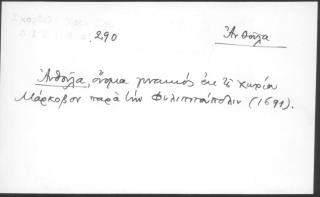 290
Ἀνθούλα
Ἀνθούλα, ὄνομα γυναικὸς ἐκ τοῦ χωρίου
Μάρκοβον παρὰ τὴν Φιλιππούπολιν (1691).